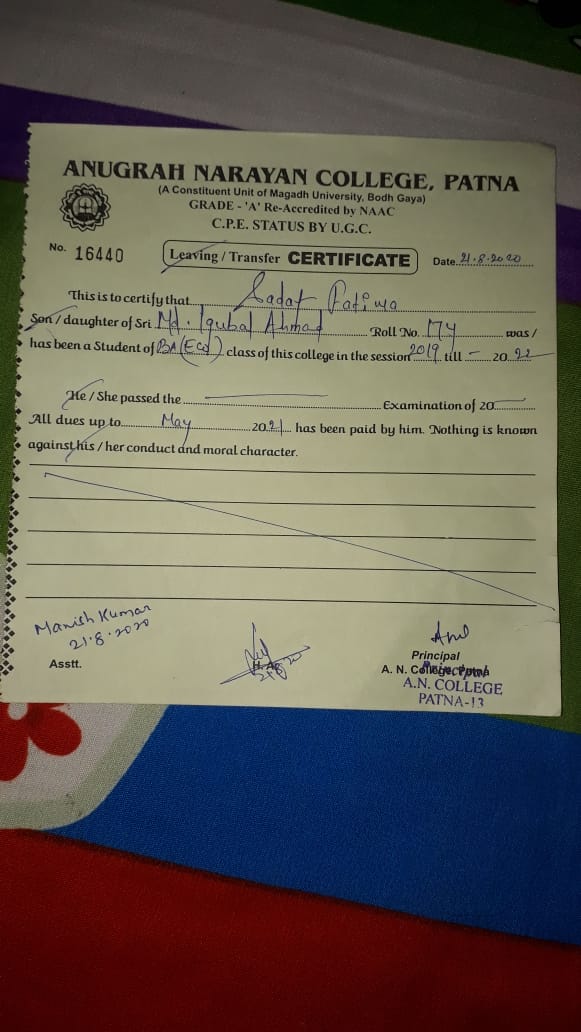 ANUGRAH NARAYAN COLLEGE, PATNA
(A Constituent Unit of Magadh University, Bodh Gaya)
GRADE - 'A' Re-Accredited by NAAC
C.P.E. STATUS BY U.G.C.
No. 16440 Leaving / Transfer CERTIFICATE Date 21.8.2020
This is to certify that Sadaf Fatima
Son / daughter of Sri Md. Iqubal Ahmad Roll No. was /
has been a Student of BA (Eco) class of this college in the session 2019 till - 2022
He / She passed the Examination of 20
All dues up to May 2021 has been paid by him. Nothing is known
against his / her conduct and moral character.
Manish Kumar
21.8.2020
Asstt.
H. A.
Principal
A. N. College, Patna
Principal
A.N. COLLEGE
PATNA-13